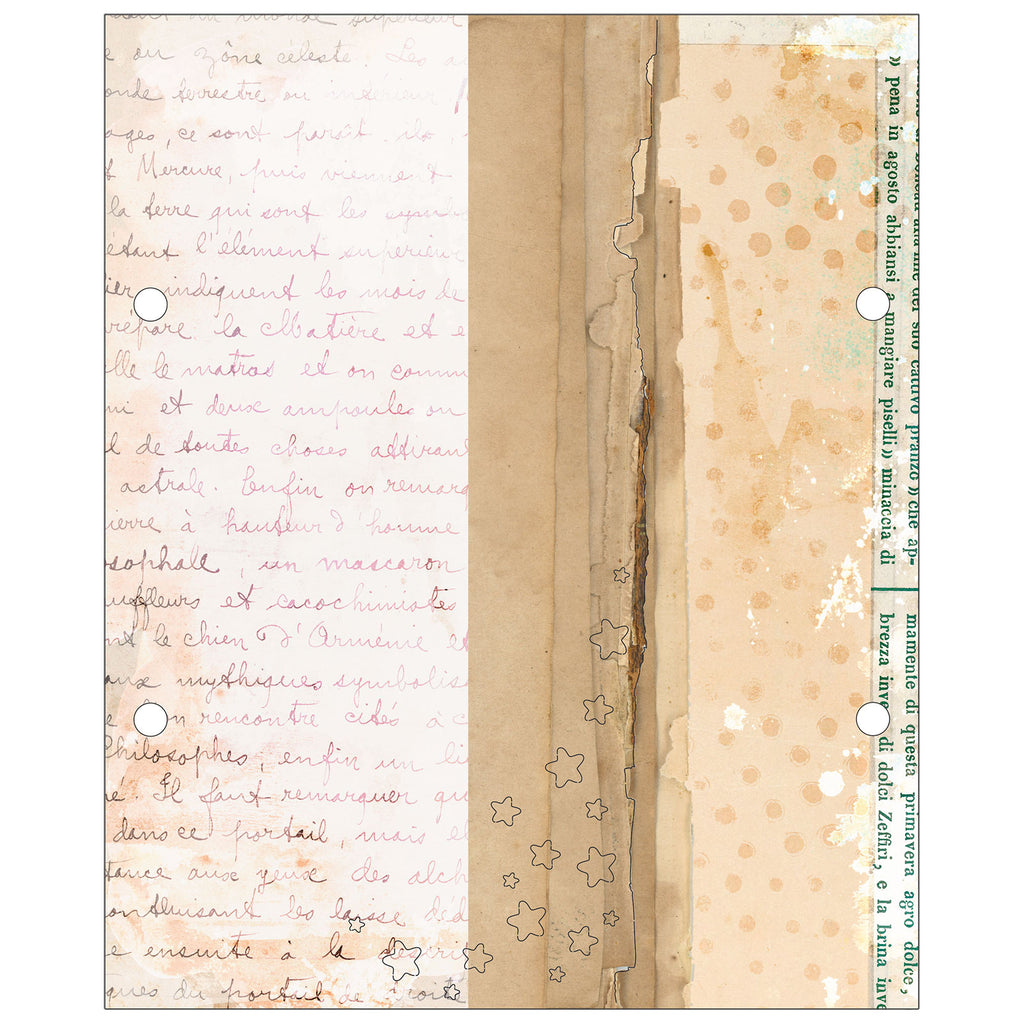 ou zône céleste. Les
onde terrestre ou intérieur
ages, ce sont paraît ils,
Mércure, puis viennent
la terre qui sont les
étant l'élément supérieur
indiquent les mois de
la Matière et
lle le matras et on comm
et deux ampoules on
de toutes choses attirant
astrale. Enfin on remarq
ierre à hauteur d'homme
osophale, un mascaron
ouffleurs et cacochimistes
nt le chien d'Arménie et
aux mythiques symbolis
on rencontre cités à c
Philosophes, enfin un li
é. Il faut remarquer qu
dans ce portail, mais el
tance aux yeux des alch
les laisse déd
e ensuite à la
ques du portail de
» pena in agosto abbiansi a mangiare piselli» minaccia di
del suo cattivo pranzo» che ap-
mamente di questa primavera agro dolce,
brezza inve di dolci Zeffiri, e la brina inve